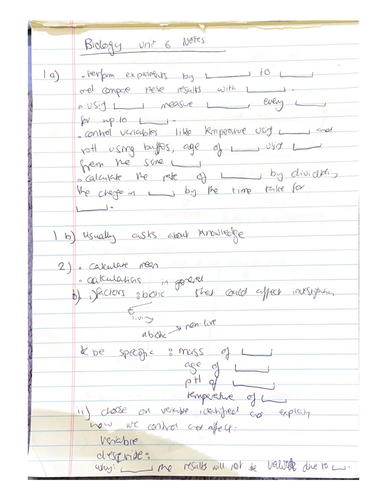 Biology unit 6 Notes
1a) • Perform experiments by [____] to [____]
and compare these results with [____].
• using [____] measure [____] every [____]
for up to [____].
• control variables like temperature using [____] and
pH using buffers, age of [____] using [____]
from the same [____]
• calculate the rate of [____] by dividing
the change in [____] by the time taken for
[____].
1 b) Usually asks about knowledge
2) • calculate mean
• calculations in general
b) i) factors: biotic that could affect investigation
living
abiotic → non-live
* be specific: mass of [____]
age of [____]
pH of [____]
temperature of [____]
ii) choose an variable identified and explain
how we control and affect:
Variable
describe:
why: [____] the results will not be valid due to [__].